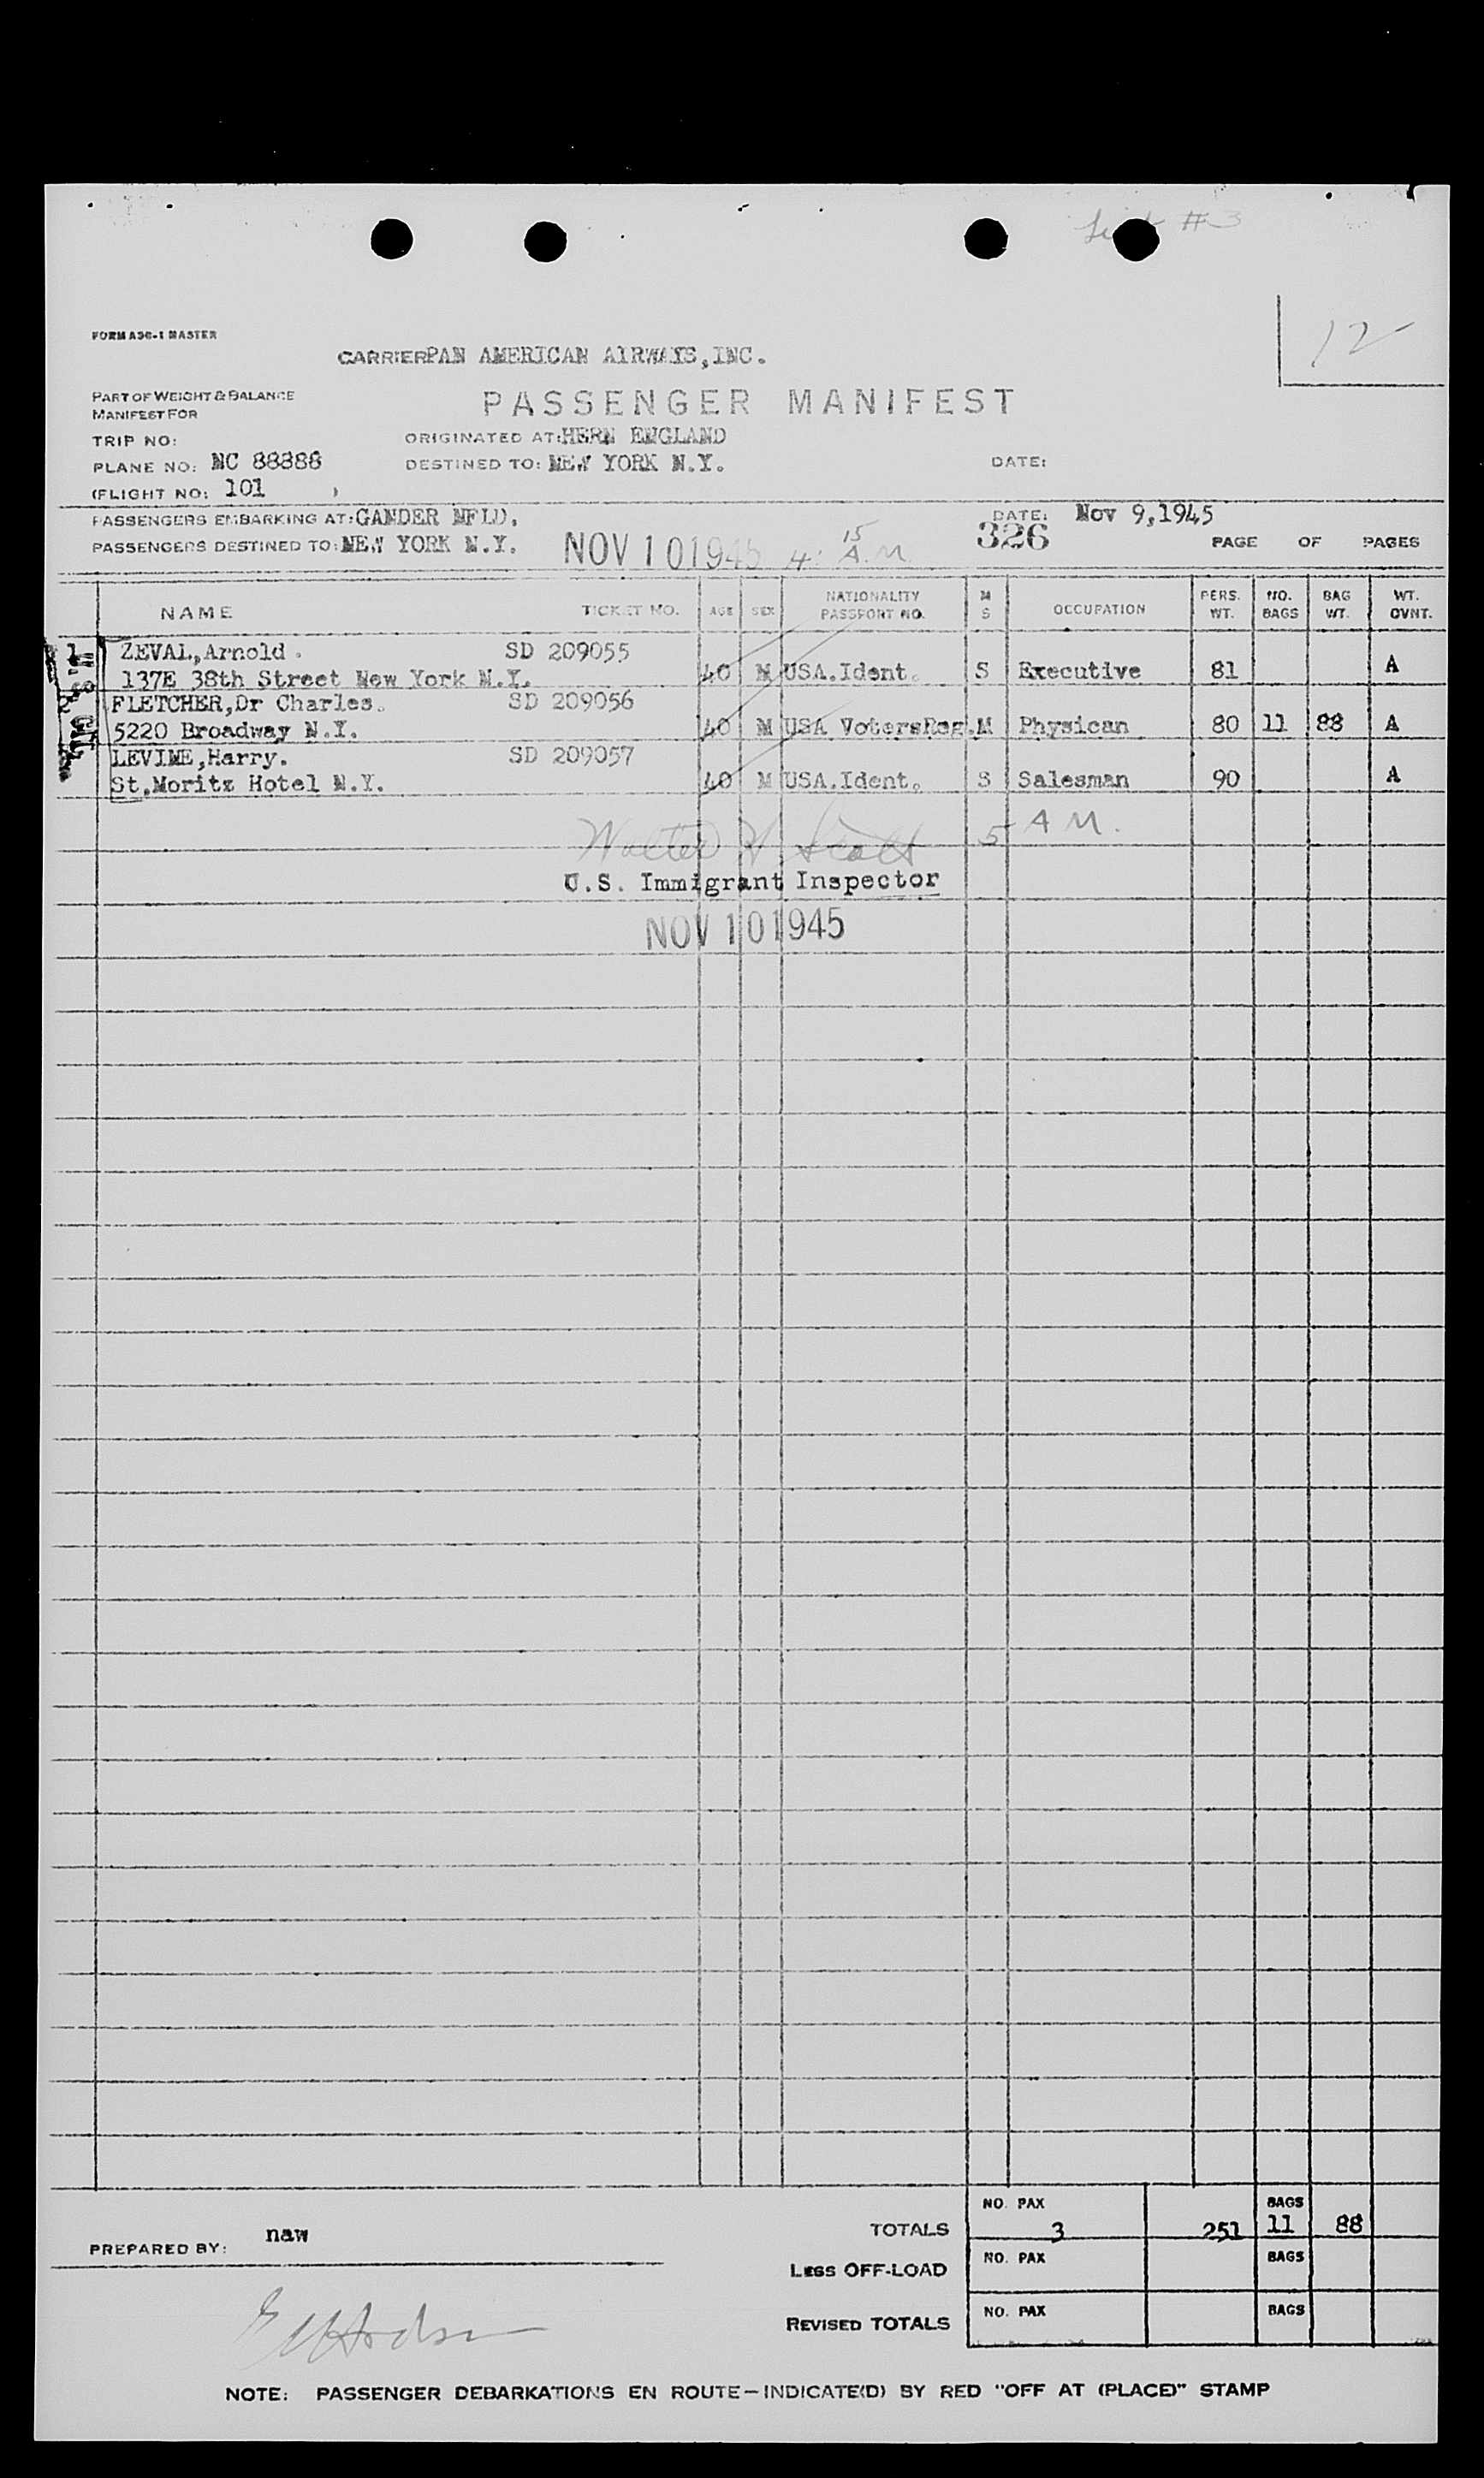 # 3
12
FORM A36-1 MASTER
CARRIER PAN AMERICAN AIRWAYS,INC.
PART OF WEIGHT & BALANCE
MANIFEST FOR
PASSENGER MANIFEST
TRIP NO:
ORIGINATED AT: HERN ENGLAND
PLANE NO: NC 88888
DESTINED TO: NEW YORK N.Y.
DATE:
(FLIGHT NO: 101 )
PASSENGERS EMBARKING AT: GANDER NFLD.
DATE: Nov 9,1945
326
PASSENGERS DESTINED TO: NEW YORK N.Y.
NOV 10 1945 4:15 A.M
PAGE OF PAGES
NAME TICKET NO. AGE SEX NATIONALITY PASSPORT NO. M S OCCUPATION PERS. WT. NO. BAGS BAG WT. WT. OVNT.
1 ZEVAL,Arnold. SD 209055
137E 38th Street New York N.Y. 40 M USA.Ident. S Executive 81 A
2 FLETCHER,Dr Charles. SD 209056
5220 Broadway N.Y. 40 M USA VotersReg. M Physican 80 11 88 A
LEVINE,Harry. SD 209057
St.Moritz Hotel N.Y. 40 M USA.Ident. S Salesman 90 A
Walter H. Scott 5 AM.
U.S. Immigrant Inspector
NOV 10 1945
PREPARED BY: naw
TOTALS NO. PAX 3 251 BAGS 11 88
LESS OFF-LOAD NO. PAX BAGS
REVISED TOTALS NO. PAX BAGS
NOTE: PASSENGER DEBARKATIONS EN ROUTE—INDICATE(D) BY RED "OFF AT (PLACE)" STAMP